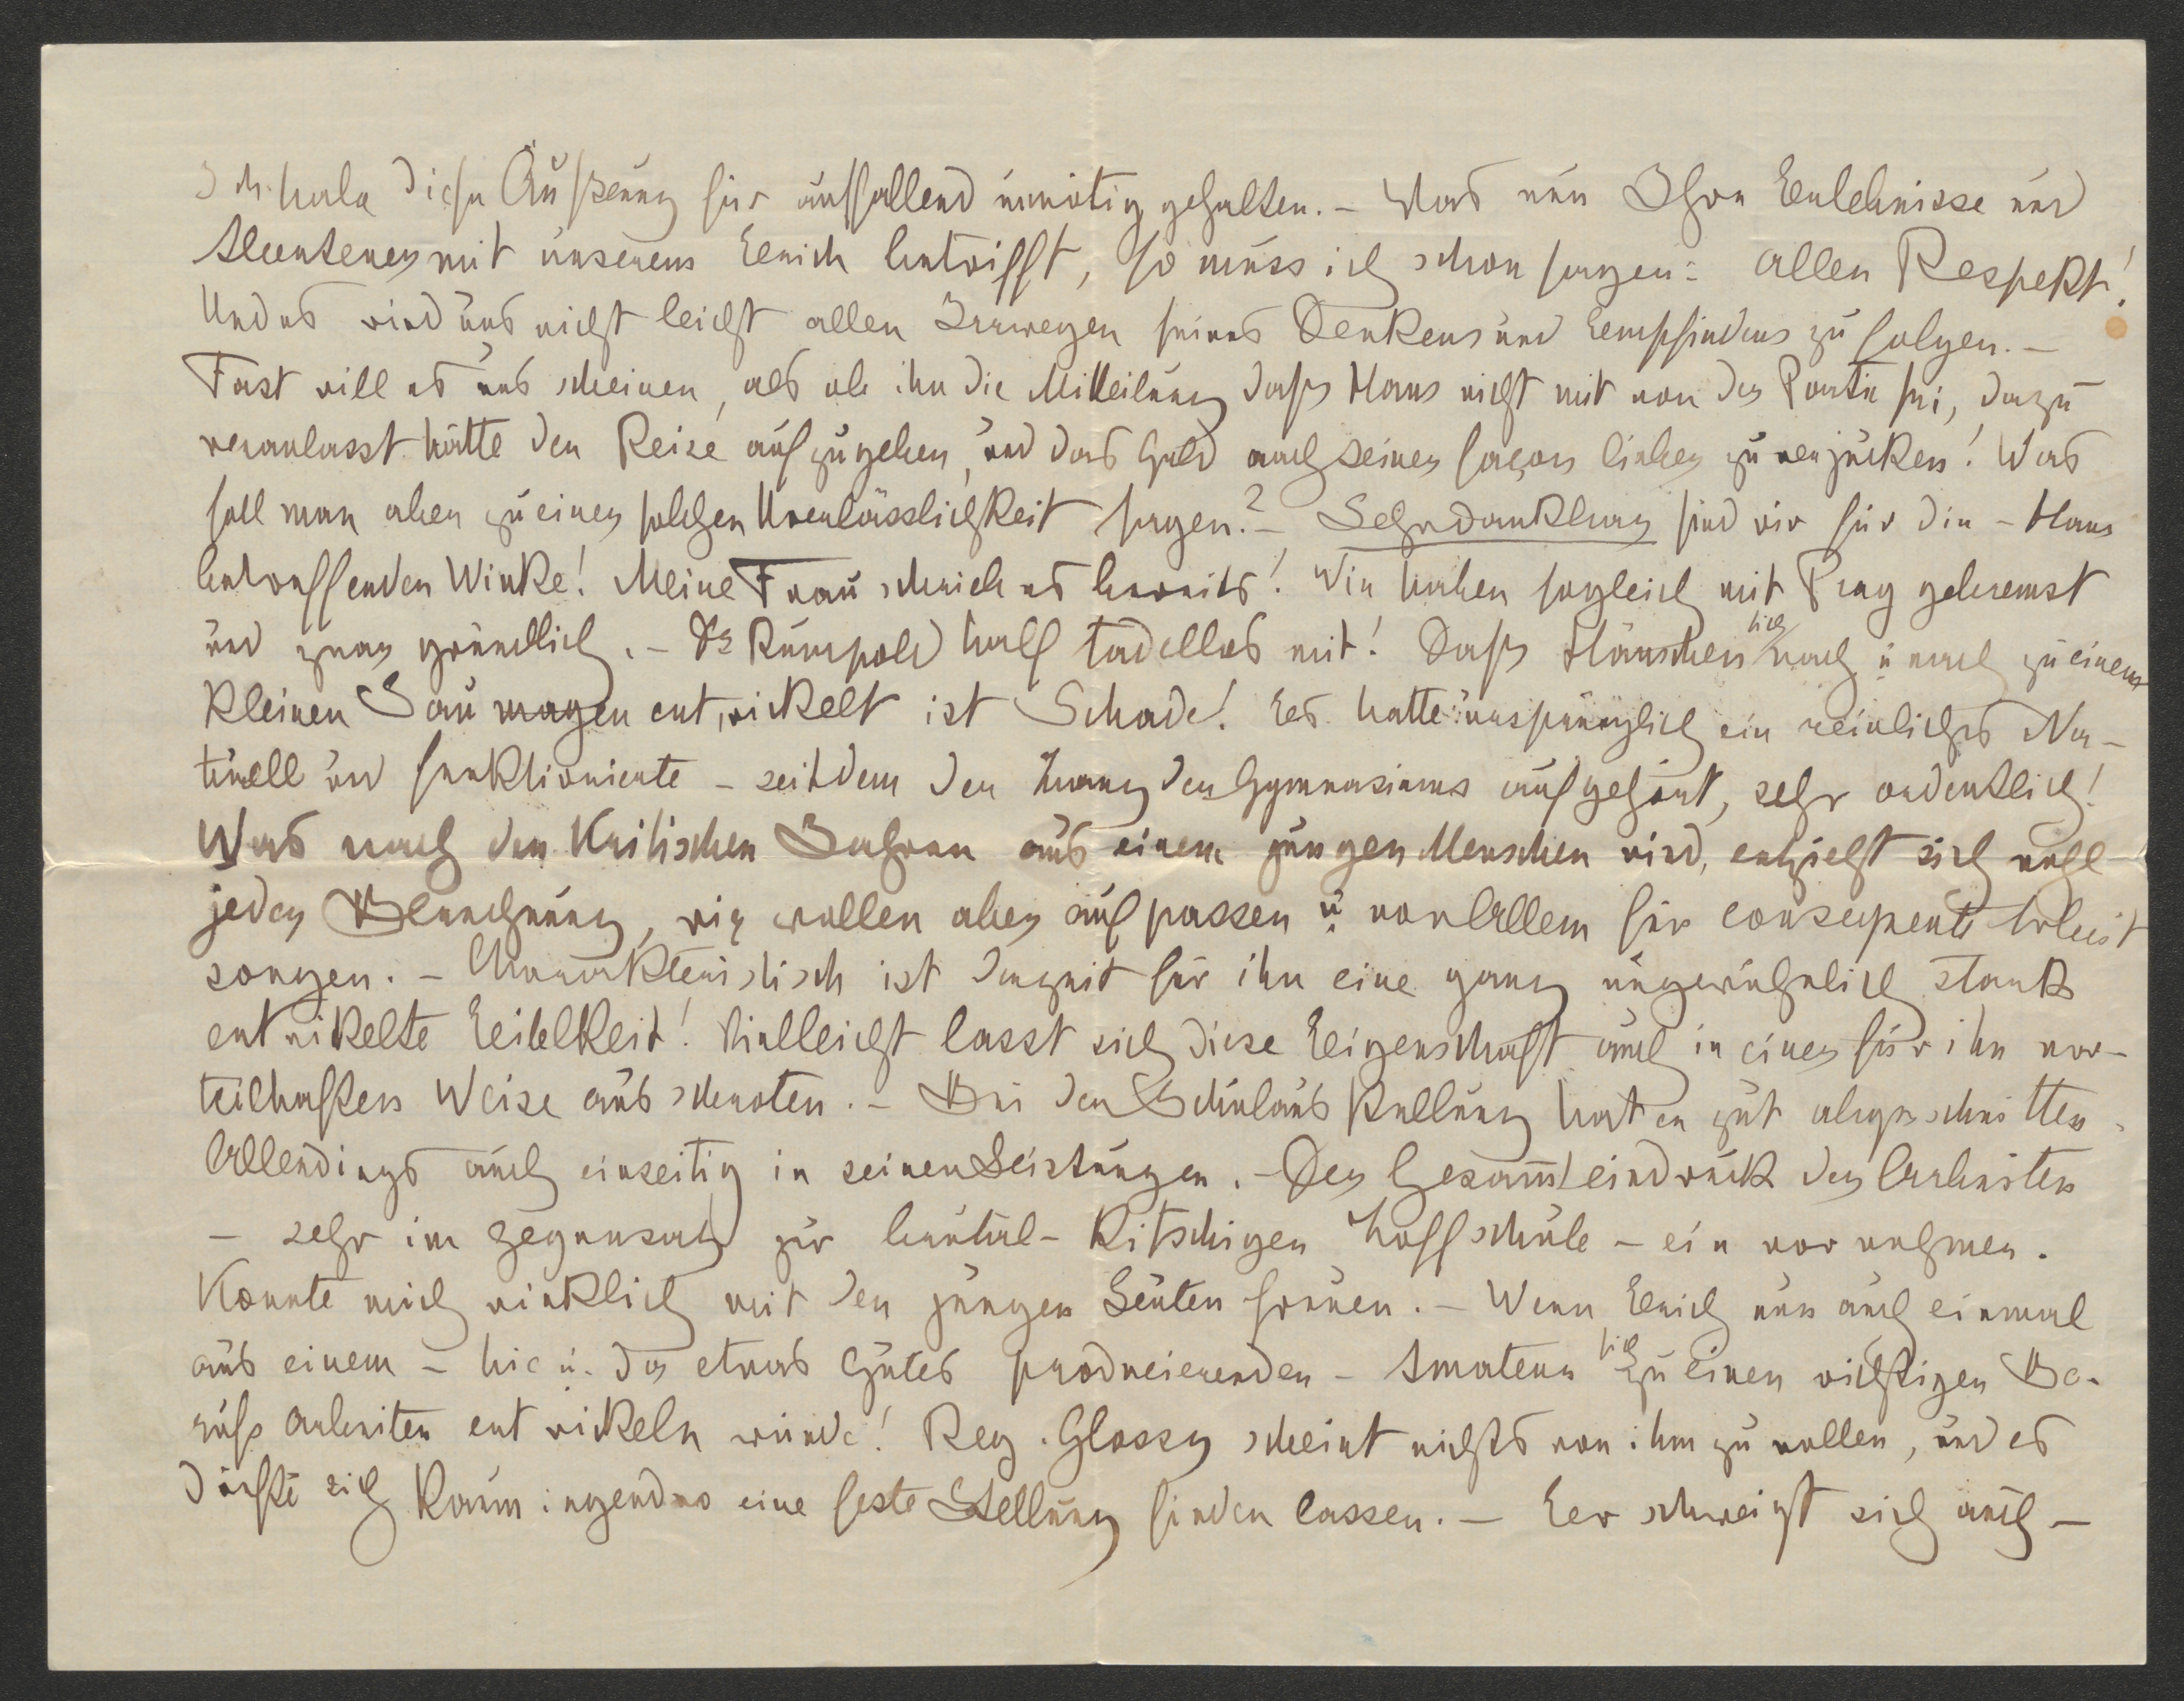 Ich habe diese Äußerung für auffallend unnötig gehalten. – Was nun Ihre Erlebnisse und
Abenteuer mit unserem Erich betrifft, so muss ich schon sagen: allen Respekt!
Und es wird uns nicht leicht allen Irrwegen seines Denkens und Empfindens zu folgen. –
Fast will es uns scheinen, als ob ihn die Mitteilung dass Hans nicht mit von der Partie sei, dazu
veranlasst hätte den Reise aufzugeben, und das Geld nach seiner façon lieber zu verjucken! Was
soll man aber zu einer solchen Unverlässlichkeit sagen? – Sehr dankbar sind wir für die – Hans
betreffenden Winke! Meine Frau schrieb es bereits! Wir haben sogleich mit Prag gebremst
und zwar gründlich. – Dr Rumpold half tadellos mit! Dass Hänschen sich nach u nach zu einem
kleinen Saumagen entwickelt ist Schade! Er hatte ursprünglich ein reinliches Na-
turell und funktionierte – seitdem der Zwang des Gymnasiums aufgehört, sehr ordentlich!
Was nach den kritischen Jahren aus einem jungen Menschen wird, entzieht sich wohl
jeder Berechnung, wir wollen aber aufpassen u vor Allem für consequente Arbeit
sorgen. – Charakteristisch ist derzeit für ihn eine ganz ungewöhnlich stark
entwikelte Eitelkeit! Vielleicht lasst sich diese Eigenschaft auch in einer für ihn vor-
teilhaften Weise ausschroten. – Bei der Schulausstellung hat er gut abgeschnitten.
Allerdings auch einseitig in seinen Leistungen. – Der Gesammteindruck der Arbeiten
– sehr im Gegensatz zur brutal-kitschigen Hoffschule – ein vornehmer.
Konnte mich wirklich mit den jungen Leuten freuen. – Wenn Erich nun auch einmal
aus einem – hie u. da etwas Gutes producierenden – Amateur sich zu einen richtigen Be-
rufsarbeiter entwickeln würde! Reg. Glossy scheint nichts von ihm zu wollen, und es
dürfte sich kaum irgendwo eine feste Stellung finden lassen. – Er schweigt sich auch –